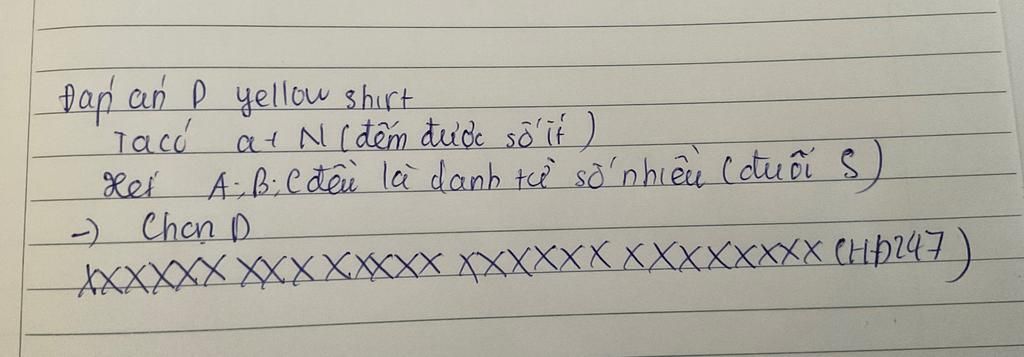 Đáp án D yellow shirt
Ta có a + N (đếm được số ít)
Xét A; B; C đều là danh từ số nhiều (đuôi S)
→ Chọn D
XXXXXX XXX XXXXX XXXXXX XXXXXXXX (HD247)